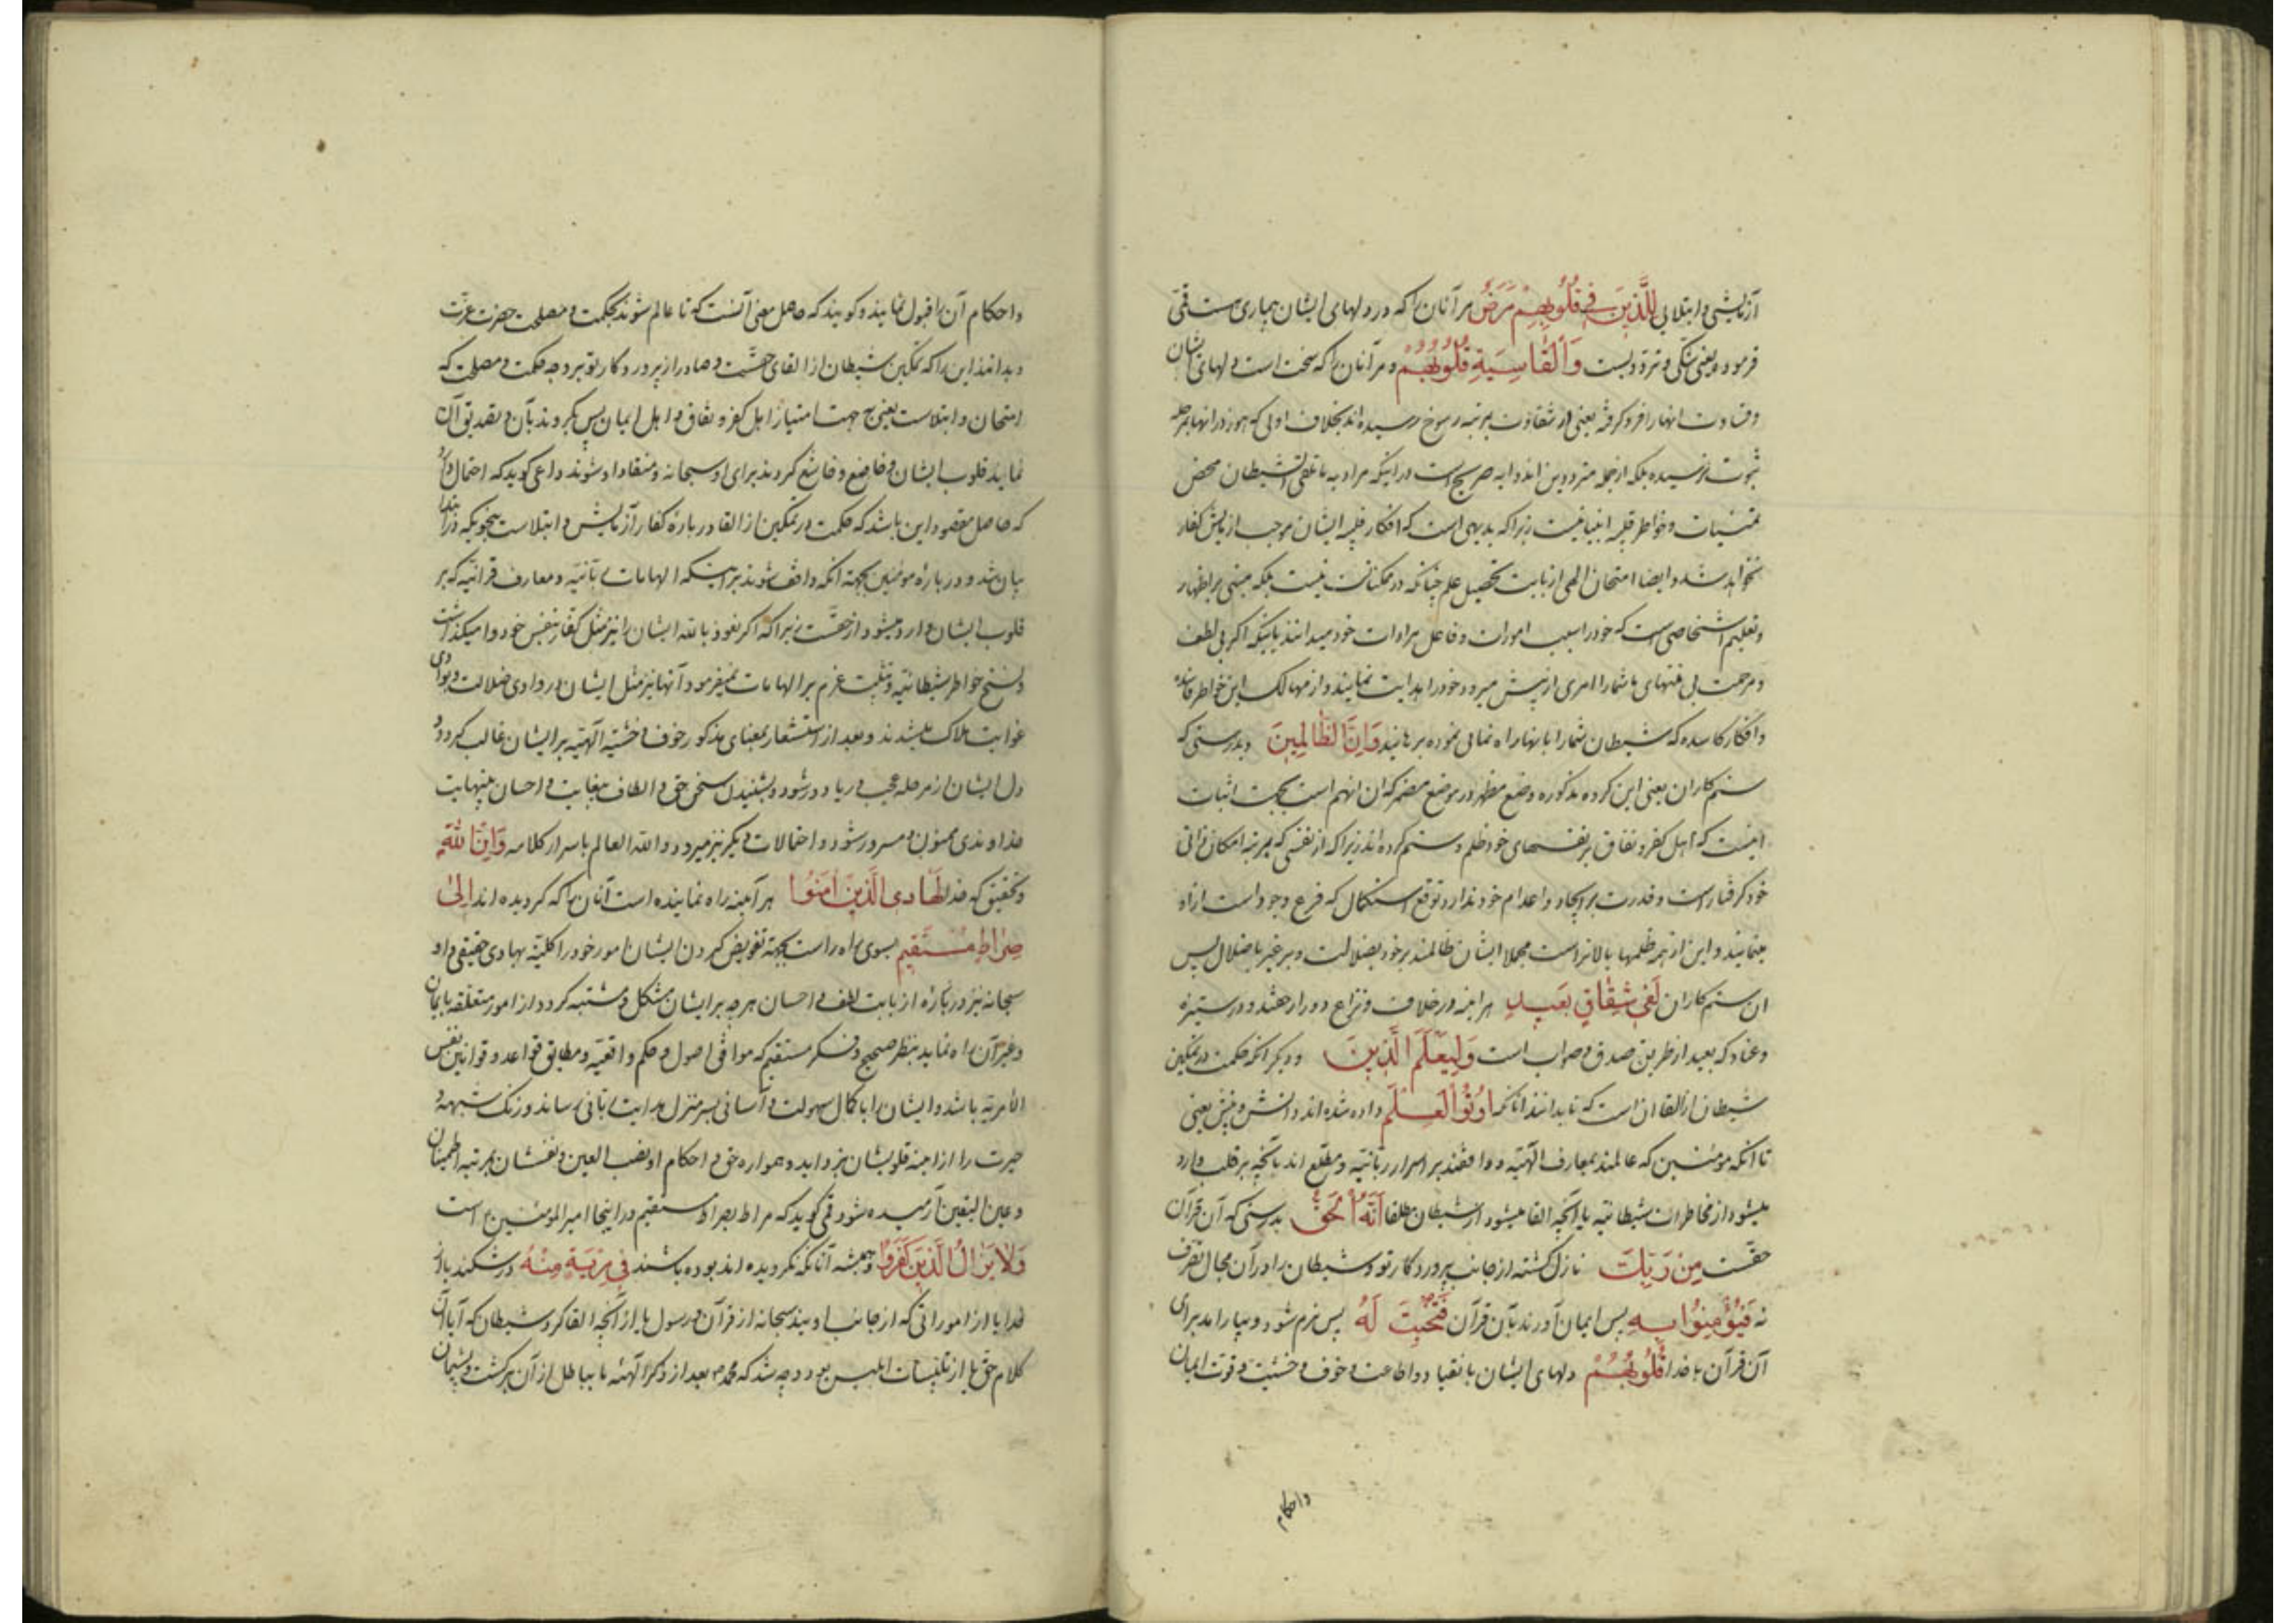 آزمایشی و ابتلایی لِلَّذِینَ فِی قُلُوبِهِمْ مَرَضٌ مر آنان را که در دلهای ایشان بیماری است قمی
فرمود و یعنی شکی و تردد یست وَ الْقَاسِیَةِ قُلُوبُهُمْ و مر آنان را که سخت است دلهای ایشان
وقساوت انها را فرو گرفته یعنی در شقاوت بمرتبه رسوخ رسیده اند بخلاف اولی که هنوز در انها بمرحله
ثبوت نرسیده بلکه از جمله مترددین اند و ایه صریح است در اینکه مراد به ما تلقی الشیطان محض
تمنیات و خواطر قلبیه انبیا نیست زیرا که بدیهی است که افکار قلبیه ایشان موجب ازمایش کفار
نخواهد شد و ایضا امتحان الهی از بابت تحصیل علم چنانکه در ممکنات نیست بلکه مبنی بر اظهار
و تعلیم اشخاصی است که خود را سبب امورات و فاعل مرادات خود میدانند باینکه اگر بی لطف
و مرحمت بی منتهای ما شما را امری از پیش میرود خود را هدایت نمایند و از مهالک این خواطر فاسده
و افکار کاسده که شیطان شما را بانها راه نمایی نموده برهانید وَ اِنَّ الظَّالِمِینَ و بدرستی که
ستم کاران یعنی این گروه مذکوره وضع مظهر در موضع مضمر که ان انهم است بجهت اثبات
اینست که اهل کفر و نفاق بر نفسهای خود ظلم و ستم کرده اند زیرا که از نفسی که بمرتبه امکان ذاتی
خود گرفتار است و قدرت بر ایجاد و اعدام خود ندارد توقع استکمال که فرع وجود است از او
مینمایند و این از همه ظلمها بالاتر است مجملا ایشان ظالمند بر خود بضلالت و بر غیر باضلال پس
ان ستم کاران لَفِی شِقَاقٍ بَعِیدٍ هر اینه در خلاف و نزاع دور از حقند و در ستیزه
و عناد که بعید از طریق صدق و صواب است وَ لِیَعْلَمَ الَّذِینَ و دیگر انکه حکمت در تمکین
شیطان از القا ان است که تا بدانند انانکه اُوتُوا الْعِلْمَ داده شده اند دانش و بینش یعنی
تا انکه مومنین که عالمند بمعارف الهیه و واقفند بر اسرار ربانیه و مطلع اند بانچه بر قلب وارد
میشود از مخاطرات شیطانیه یا آنچه القا میشود از شیطان مطلقا اَنَّهُ الْحَقُّ بدرستی که آن قرآن
حقست مِنْ رَبِّکَ نازل گشته از جانب پروردگار تو و شیطان را در آن مجال تصرف
نه فَیُؤْمِنُوا بِهِ پس ایمان آورند بآن قرآن فَتُخْبِتَ لَهُ پس نرم شود و بیارامد برای
آن قرآن یا خدا قُلُوبُهُمْ دلهای ایشان بانقیاد و اطاعت و خوف و خشیت و قوت ایمان
و احکام
و احکام آن را قبول نمایند و گویند که حاصل معنی آنست که تا عالم شوند بحکمت و مصلحت حضرت عزت
و بدانند این را که تمکین شیطان از القای حقست و صادر از پروردگار تو بر وجه حکمت و مصلحت که
امتحان و ابتلاست یعنی بجهت امتیاز اهل کفر و نفاق و اهل ایمان پس بگروند بآن و تصدیق آن
نمایند قلوب ایشان و خاضع و خاشع گردند برای او سبحانه و منقاد او شوند داعی گوید که احتمال دارد
که حاصل مقصود این باشد که حکمت در تمکین از القا در باره کفار آزمایش و ابتلاست بنحویکه در ابتدا
بیان شد و در باره مومنین بجهة آنکه واقف شوند بر اینکه الهامات ربانیه و معارف قرآنیه که بر
قلوب ایشان وارد میشود از حقست زیرا که اگر نعوذ بالله ایشان را نیز مثل کفار بنفس خود وا میگذاشت
و نسخ خواطر شیطانیه و تثبیت عزم بر الهامات نمیفرمود آنها نیز مثل ایشان در وادی ضلالت و بوادی
غوایت هلاک میشدند و بعد از استشعار بمعنای مذکور خوف و خشیه الهیه بر ایشان غالب گردد و
دل ایشان از مرحله عجب و ریا دور شود و بشنیدن سخن حق و الطاف بیغایت و احسان بینهایت
خداوندی ممنون و مسرور شود و احتمالات دیگر نیز میرود و الله العالم باسرار کلامه وَ اِنَّ اللّٰهَ
و تحقیق که خدا لَهَادِی الَّذِینَ آمَنُوا هر آینه راه نماینده است آنان را که گرویده اند اِلٰی
صِرَاطٍ مُسْتَقِیمٍ بسوی راه راست بجهة تفویض کردن ایشان امور خود را کلیة بهادی حقیقی و او
سبحانه نیز در باره از بابت لطف و احسان هر چه بر ایشان مشکل و مشتبه گردد از امور متعلقه بایمان
و غیر آن راه نماید بنظر صحیح و فکر مستقیم که موافق اصول و حکم واقعیه و مطابق قواعد و قوانین نفس
الأمریه باشد و ایشان را با کمال سهولت و آسانی بسر منزل هدایت ربانی رساند و زنگ شبهه و
حیرت را از اینه قلوبشان بزداید و همواره حق و احکام او نصب العین و نفسشان بمرتبه اطمینان
و عین الیقین آرمیده شود قمی گوید که مراد بصراط مستقیم در اینجا امیر المؤمنین ع است
وَ لَا یَزَالُ الَّذِینَ کَفَرُوا و همیشه آنانکه نگرویده اند بوده باشند فِی مِرْیَةٍ مِنْهُ در شکند یا از
خدا یا از اموراتی که از جانب اویند سبحانه از قرآن و رسول یا از آنچه القا کرد شیطان که آیا آن
کلام حق یا از تلبیسات ابلیس بود و چه شد که محمد ص بعد از ذکر آلهه ما بباطل از آن برگشت و پشیمان